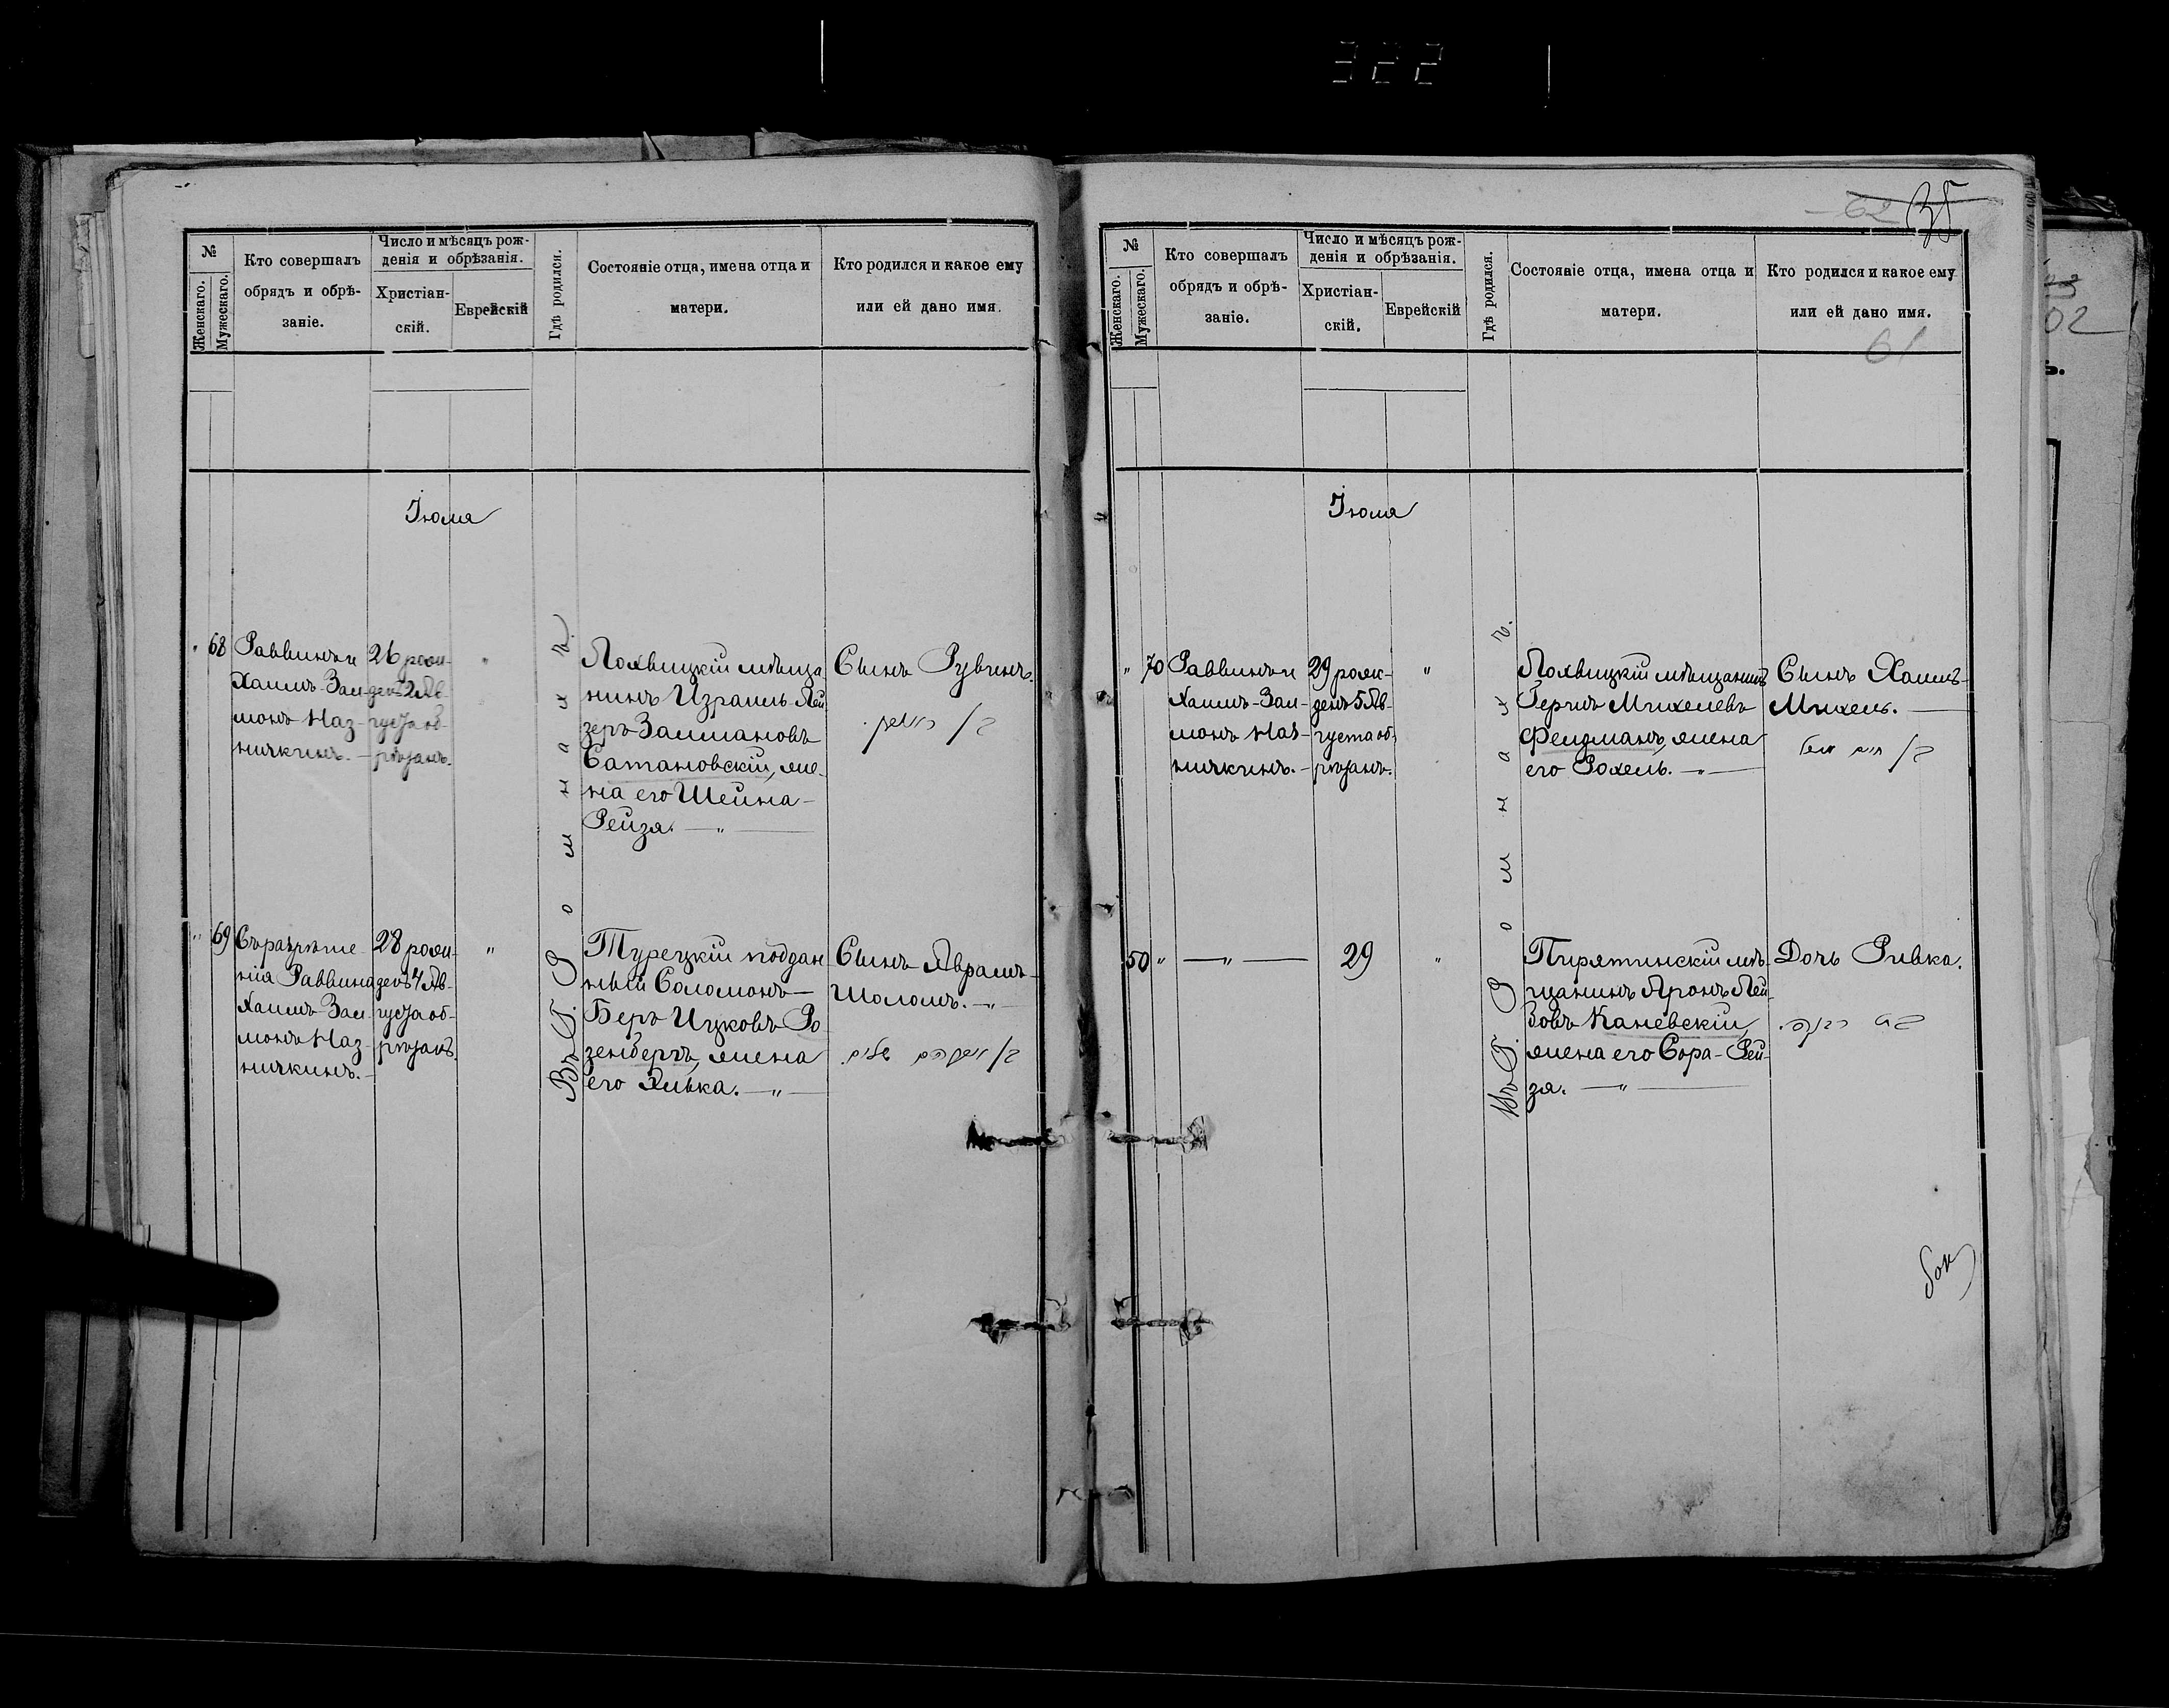 322
35
62
61
02
№
Женскаго.
Мужескаго.
Кто совершалъ
обрядъ и обрѣ-
заніе.
Число и мѣсяцъ рож-
денія и обрѣзанія.
Христіан-
скій.
Еврейскій
Гдѣ родился.
Состояніе отца, имена отца и
матери.
Кто родился и какое ему
или ей дано имя.
Іюля
" 68
Раввинъ и
Хаимъ-Зал-
монъ Наз-
ничкинъ. —
26 рож-
денъ 2 Ав-
густа об-
рѣзанъ.
"
Лохвицкій мѣща-
нинъ Израиль-Лей
зеръ Залмановъ
Сатановскій, же-
на его Шейна-
Рейза. — " —
Сынъ Рувинъ.
ס/ ראובן.
" 69
Съ разрѣше-
нія Раввина
Хаимъ-Зал-
монъ Наз-
ничкинъ. —
28 рож-
денъ 4 Ав-
густа об-
рѣзанъ.
"
Турецкій поддан-
ный Соломонъ-
Беръ Ицковъ Ро-
зенбергъ, жена
его Хивка. — " —
Сынъ Аврамъ-
Шоломъ. — " —
ס/ אברהם שלום.
Въ Г. Ромнахъ.
№
Женскаго.
Мужескаго.
Кто совершалъ
обрядъ и обрѣ-
заніе.
Число и мѣсяцъ рож-
денія и обрѣзанія.
Христіан-
скій.
Еврейскій
Гдѣ родился.
Состояніе отца, имена отца и
матери.
Кто родился и какое ему
или ей дано имя.
Іюля
" 70
Раввинъ и
Хаимъ-Зал-
монъ Наз-
ничкинъ. —
29 рож-
денъ 5 Ав-
густа об-
рѣзанъ.
"
Лохвицкій мѣщанинъ
Герцъ Михелевъ
Фельдманъ, жена
его Рохель. — " —
Сынъ Хаимъ-
Михель. —
ס/ חיים מיכל
50 "
— " —
29
"
Пирятинскій мѣ-
щанинъ Аронъ Лей-
зовъ Каневскій,
жена его Сора-Рей-
за. — " —
Дочь Ривка.
רבקה.
Въ Г. Ромнахъ.